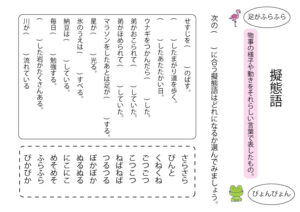 擬態語
足がふらふら
物事の様子や動きをそれらしい言葉で表したもの。
ぴょんぴょん
次の( )に合う擬態語はどれになるか選んでみましょう。
せすじを( )のばす。
( )したまがり道を歩く。
( )したあたたかい日。
ウナギをつかんだら( )した。
弟がおこられて( )していた。
弟がほめられて( )していた。
マラソンをしたあとは足が( )する。
星が( )光る。
氷のうえは( )すべる。
納豆は( )している。
毎日( )勉強する。
( )した岩がたくさんある。
川が( )流れている
さらさら
ぴんと
くねくね
ごつごつ
こつこつ
ねばねば
つるつる
ぽかぽか
ぬるぬる
にこにこ
めそめそ
ふらふら
ぴかぴか